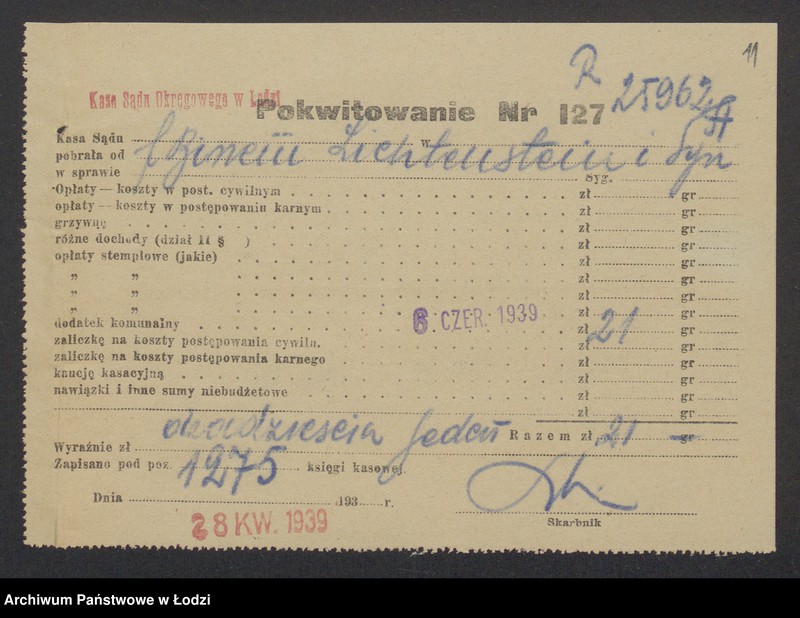 11
R 25962
Kasa Sądu Okręgowego w Łodzi
Pokwitowanie Nr 127
Kasa Sądu w
pobrała od Lichtenstein i Syn
w sprawie Syg.
Opłaty — koszty w post. cywilnym zł gr
opłaty — koszty w postępowaniu karnym zł gr
grzywnę zł gr
różne dochody (dział II § ) zł gr
opłaty stemplowe (jakie) zł gr
„ „ zł gr
„ „ zł gr
„ „ zł gr
dodatek komunalny 6 CZER. 1939 zł gr
zaliczkę na koszty postępowania cywiln. zł 21 gr
zaliczkę na koszty postępowania karnego zł gr
kaucję kasacyjną zł gr
nawiązki i inne sumy niebudżetowe zł gr
zł gr
Wyraźnie zł dwadzieścia jeden Razem zł 21 — gr
Zapisano pod poz. 1275 księgi kasowej.
Dnia 193 r.
28 KW. 1939
Skarbnik
Archiwum Państwowe w Łodzi